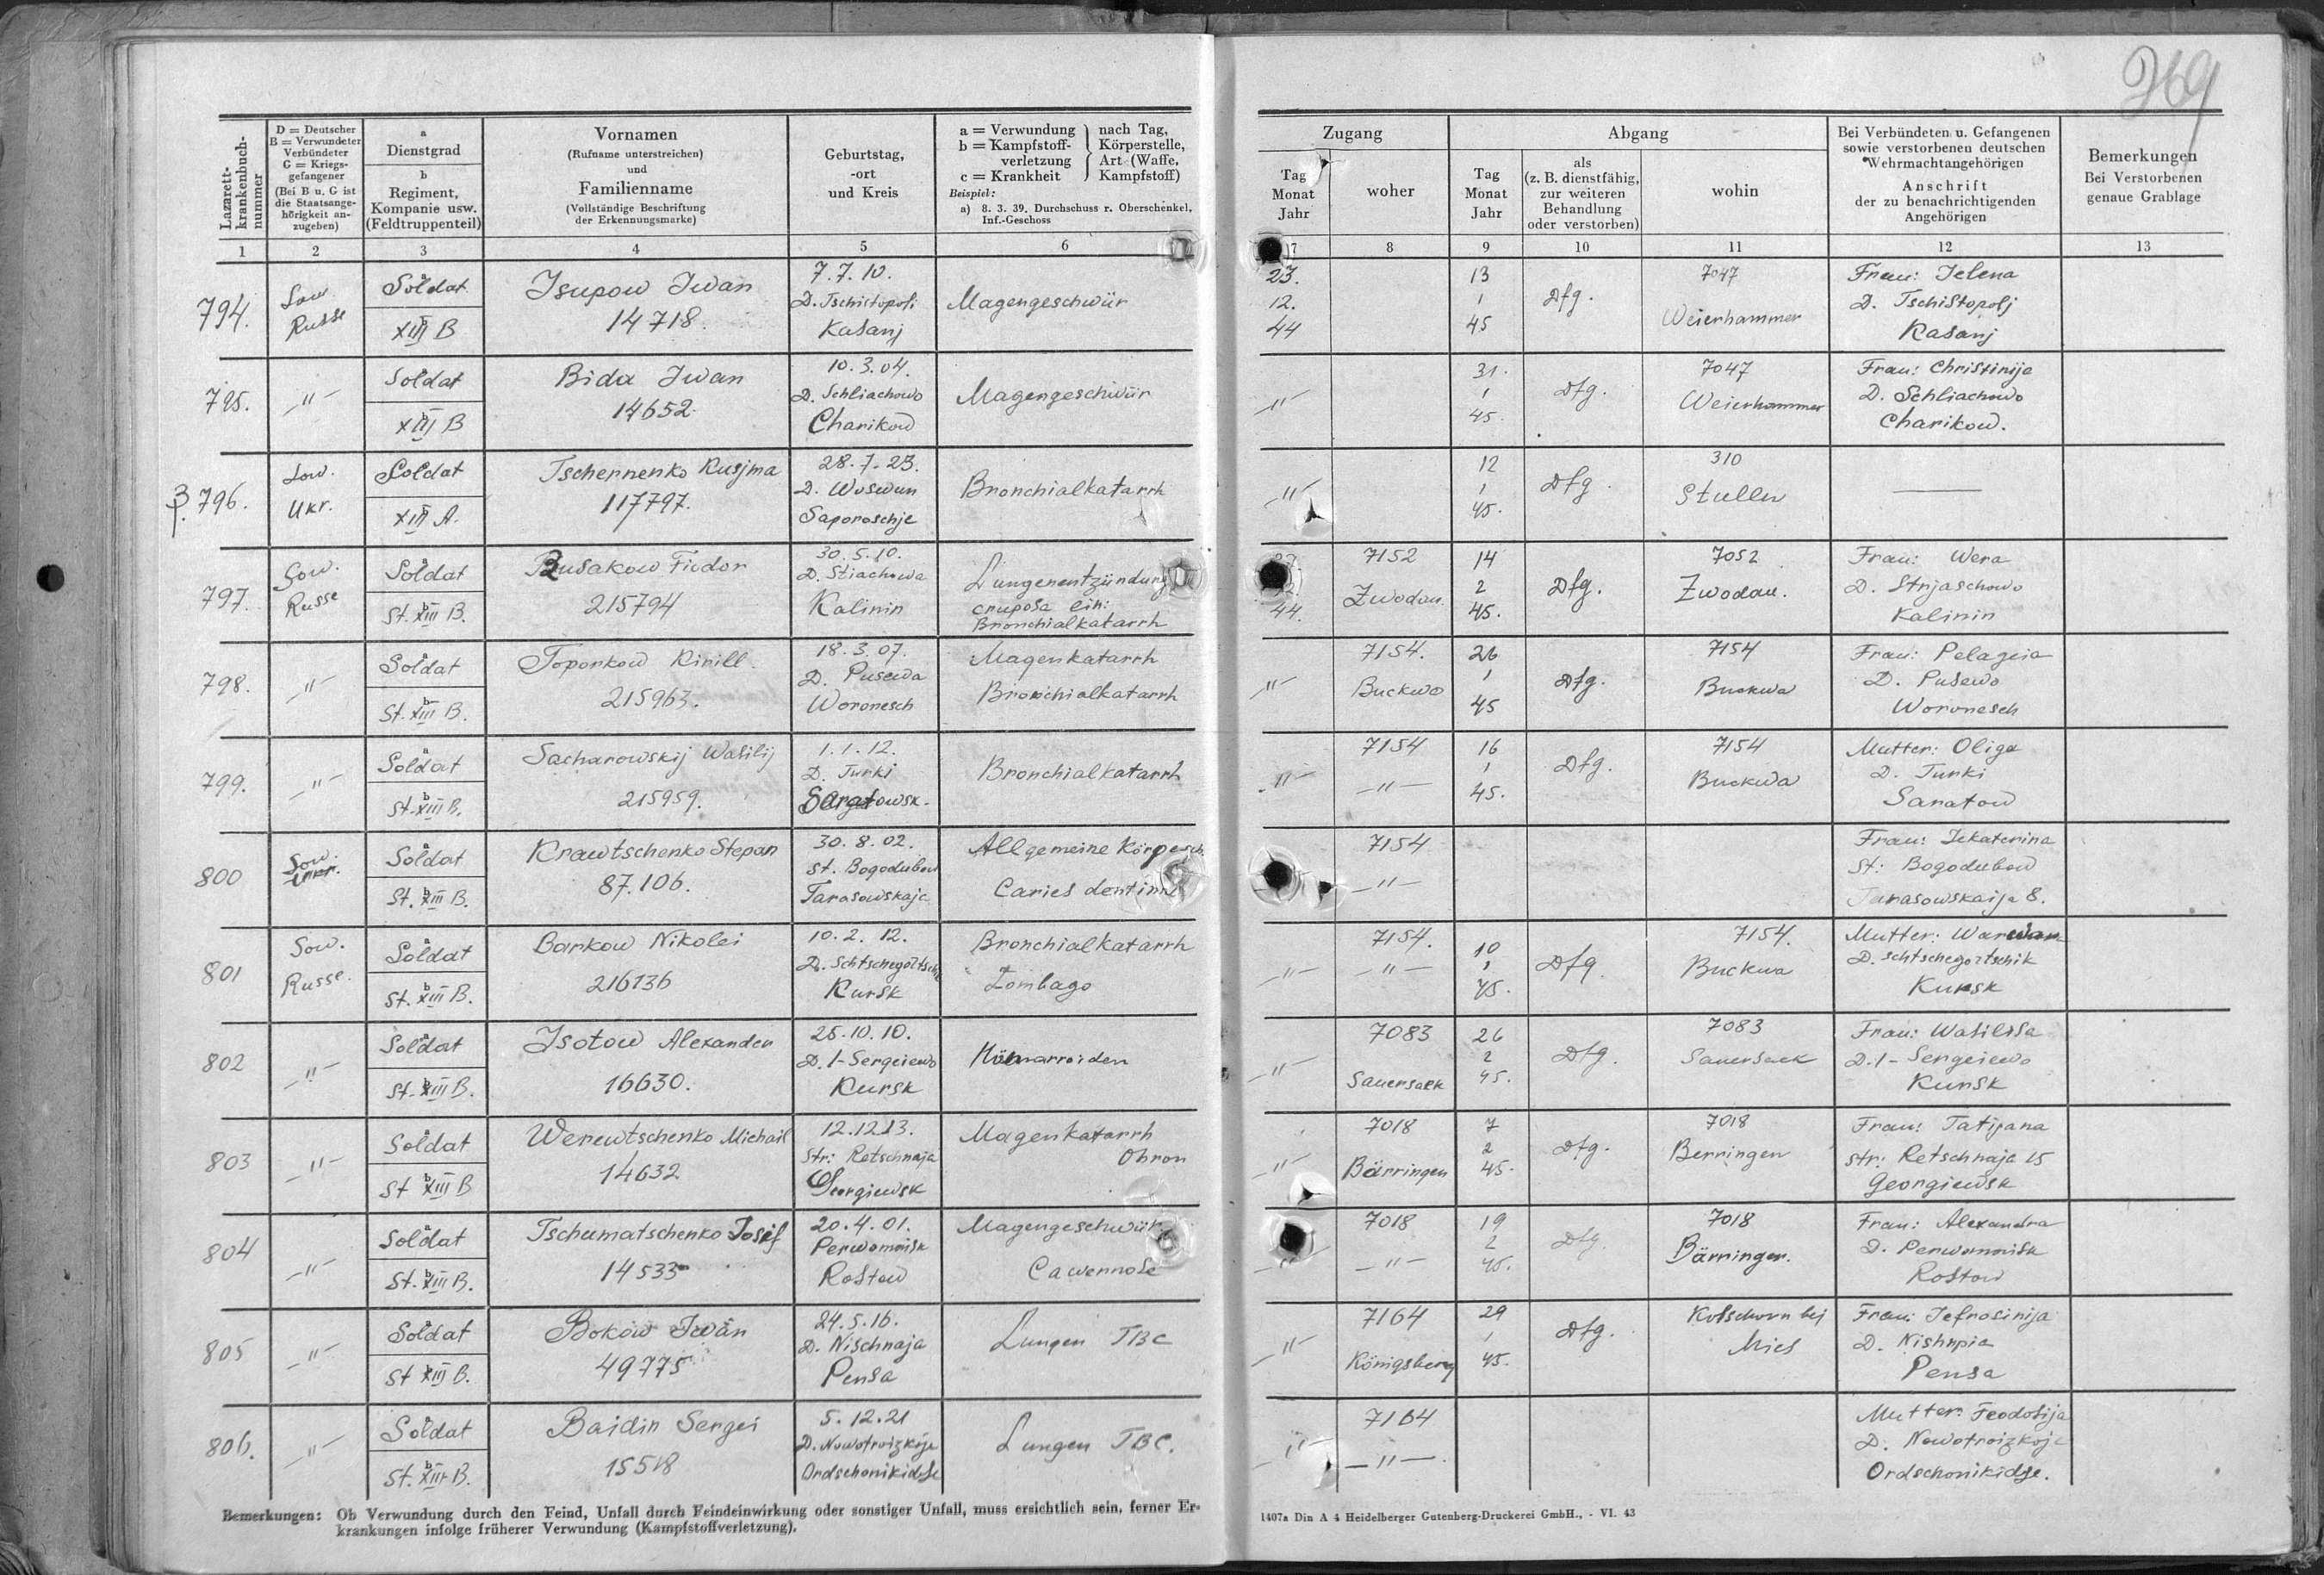 769
Lazarett-
krankenbuch-
nummer
D = Deutscher
B = Verwundeter
Verbündeter
G = Kriegs-
gefangener
(Bei B u. G ist
die Staatsange-
hörigkeit an-
zugeben)
a
Dienstgrad
b
Regiment,
Kompanie usw.
(Feldtruppenteil)
Vornamen
(Rufname unterstreichen)
und
Familienname
(Vollständige Beschriftung
der Erkennungsmarke)
Geburtstag,
-ort
und Kreis
a = Verwundung
b = Kampfstoff-
verletzung
c = Krankheit
nach Tag,
Körperstelle,
Art (Waffe,
Kampfstoff)
Beispiel:
a) 8. 3. 39. Durchschuss r. Oberschenkel,
Inf.-Geschoss
Zugang
Tag
Monat
Jahr
woher
Abgang
Tag
Monat
Jahr
als
(z. B. dienstfähig,
zur weiteren
Behandlung
oder verstorben)
wohin
Bei Verbündeten u. Gefangenen
sowie verstorbenen deutschen
Wehrmachtangehörigen
Anschrift
der zu benachrichtigenden
Angehörigen
Bemerkungen
Bei Verstorbenen
genaue Grablage
1 2 3 4 5 6 7 8 9 10 11 12 13
794.
Sow
Russe
a
Soldat
b
XIII B
Isupow Iwan
14718.
7.7.10.
D. Tschistopoli
Kasanj
Magengeschwür
23.
12.
44
13
1
45
Dfg.
7047
Weierhammer
Frau: Jelena
D. Tschistopolj
Kasanj
795.
-"-
a
Soldat
b
XIII B
Bida Iwan
14652.
10.3.04.
D. Schliachowo
Charikow
Magengeschwür
-"-
31.
1
45.
Dfg.
7047
Weierhammer
Frau: Christinije
D. Schliachowo
Charikow.
796.
Sow.
Ukr.
a
Soldat
b
XIII A.
Tschernenko Kusjma
117797.
28.7.23.
D. Woswun
Saporoschje
Bronchialkatarrh
-"-
12
1
45.
Dfg.
310
Stulln
797.
Sow.
Russe
a
Soldat
b
St. XIII B.
Busakow Fiodor
215794
30.5.10.
D. Stiachowa
Kalinin
Lungenentzündung
cruposa
Bronchialkatarrh
44.
7152
Zwodau.
14
2
45.
Dfg.
7052
Zwodau.
Frau: Wera
D. Strjaschowo
Kalinin
798.
-"-
a
Soldat
b
St. XIII B.
Toporkow Kirill.
215963.
18.3.07.
D. Pusewa
Woronesch
Magenkatarrh
Bronchialkatarrh
-"-
7154.
Buckwo
26
1
45
Dfg.
7154
Buckwa
Frau: Pelageia
D. Pusewo
Woronesch
799.
-"-
a
Soldat
b
St. XIII B.
Sacharowskij Wasilij
215959.
1.1.12.
D. Turki
Saratowsk.
Bronchialkatarrh
-"-
7154
-"-
16
1
45.
Dfg.
7154
Buckwa
Mutter: Oliga
D. Turki
Saratow
800
Sow.
Ukr.
a
Soldat
b
St. XIII B.
Krawtschenko Stepan
87.106.
30.8.02.
St. Bogodubow
Tarasowskaja
Allgemeine Körpersch
Caries dentium
7154
-"-
Frau: Jekaterina
St: Bogodubow
Tarasowskaija 8.
801
Sow.
Russe.
a
Soldat
b
St. XIII B.
Barkow Nikolei
216136
10.2.12.
D. Schtschegoltschik
Kursk
Bronchialkatarrh
Lombago
-"-
7154.
-"-
10
1
45.
Dfg.
7154.
Buckwa
Mutter: Warwar
D. Schtschegortschik
Kursk
802
-"-
a
Soldat
b
St. XIII B.
Isotow Alexander
16630.
25.10.10.
D. 1-Sergeiewo
Kursk
Hämarroiden
-"-
7083
Sauersack
26
2
45.
Dfg.
7083
Sauersack
Frau: Wasilssa
D. 1-Sergeiewo
Kursk
803
-"-
a
Soldat
b
St XIII B
Werewtschenko Michail
14632
12.12.13.
Str: Retschnaja
Georgiewsk
Magenkatarrh
Chron
-"-
7018
Bärringen
7
2
45.
Dfg.
7018
Berringen
Frau: Tatijana
Str: Retschnaja 15
Georgiewsk
804
-"-
a
Soldat
b
St. XIII B.
Tschumatschenko Josif
14533
20.4.01.
Perwomaisk
Rostow
Magengeschwür
-"-
7018
-"-
19
2
45.
Dfg.
7018
Bärringen.
Frau: Alexandra
D. Perwomaisk
Rostow
805
-"-
a
Soldat
b
St XIII B.
Bokow Iwan
49775
24.5.16.
D. Nischnaja
Pensa
Lungen TBC
-"-
7164
Königsberg
29
1
45.
Dfg.
Kotschorn bej
Mies
Frau: Jefrosinija
D. Nishnpia
Pensa
806.
-"-
a
Soldat
b
St. XIII B.
Baidin Sergei
15518
5.12.21
D. Nowotroizkoje
Ordschonikidse
Lungen TBC.
-"-
7164
-"-
Mutter: Feodosija
D. Nowotroizkoje
Ordschonikidse.
Bemerkungen: Ob Verwundung durch den Feind, Unfall durch Feindeinwirkung oder sonstiger Unfall, muss ersichtlich sein, ferner Er-
krankungen infolge früherer Verwundung (Kampfstoffverletzung).
1407a Din A 4 Heidelberger Gutenberg-Druckerei GmbH., - VI. 43